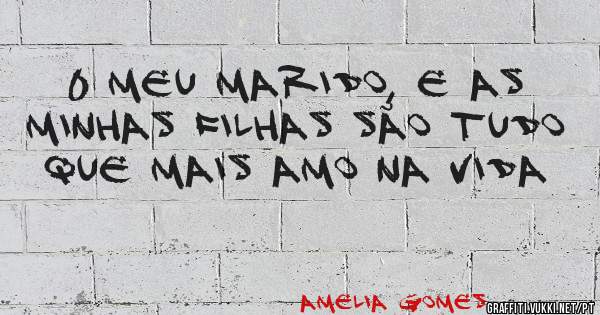 O MEU MARIDO, E AS
MINHAS FILHAS SÃO TUDO
QUE MAIS AMO NA VIDA
AMELIA GOMES
GRAFFITI.VUKKI.NET/PT